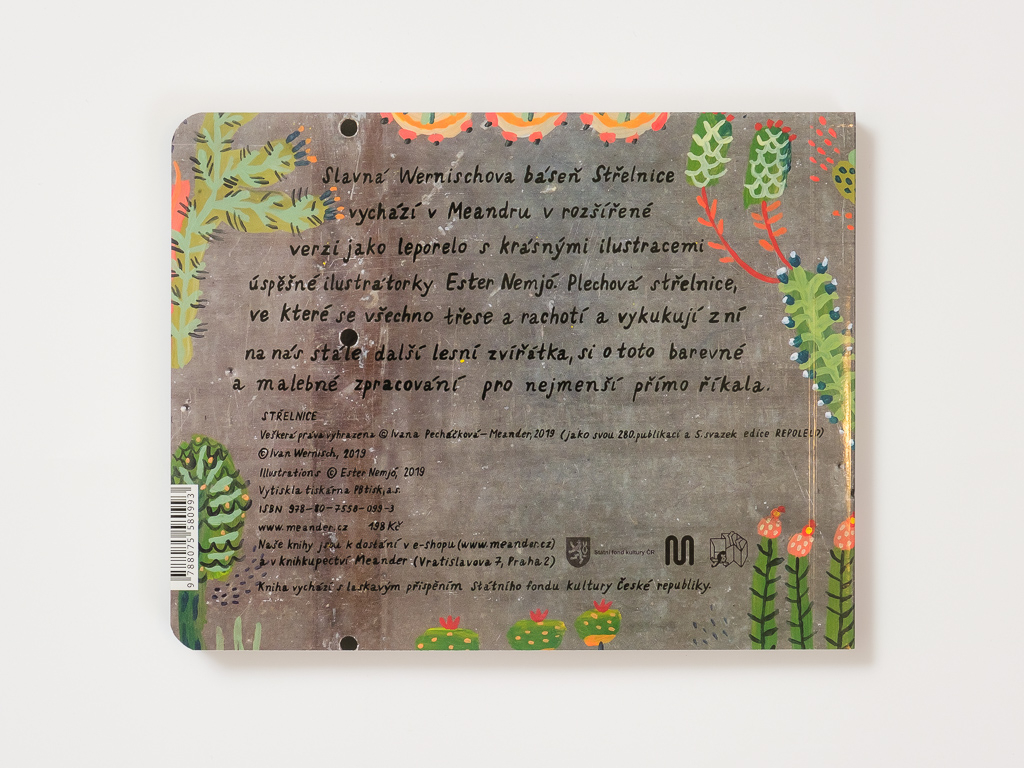 Slavná Wernischova báseň Střelnice
vychází v Meandru v rozšířené
verzi jako leporelo s krásnými ilustracemi
úspěšné ilustrátorky Ester Nemjó. Plechová střelnice,
ve které se všechno třese a rachotí a vykukují z ní
na nás stále další lesní zvířátka, si o toto barevné
a malebné zpracování pro nejmenší přímo říkala.
STŘELNICE
Veškerá práva vyhrazena © Ivana Pecháčková – Meander, 2019 (jako svou 280. publikaci a 5. svazek edice REPOLELO)
© Ivan Wernisch, 2019
Illustrations © Ester Nemjó, 2019
Vytiskla tiskárna PBtisk, a.s.
ISBN 978-80-7558-099-3
www.meander.cz 198 Kč
Naše knihy jsou k dostání v e-shopu (www.meander.cz)
a v knihkupectví Meander (Vratislavova 7, Praha 2)
Státní fond kultury ČR
Kniha vychází s laskavým přispěním Státního fondu kultury České republiky.
9 788075 580993